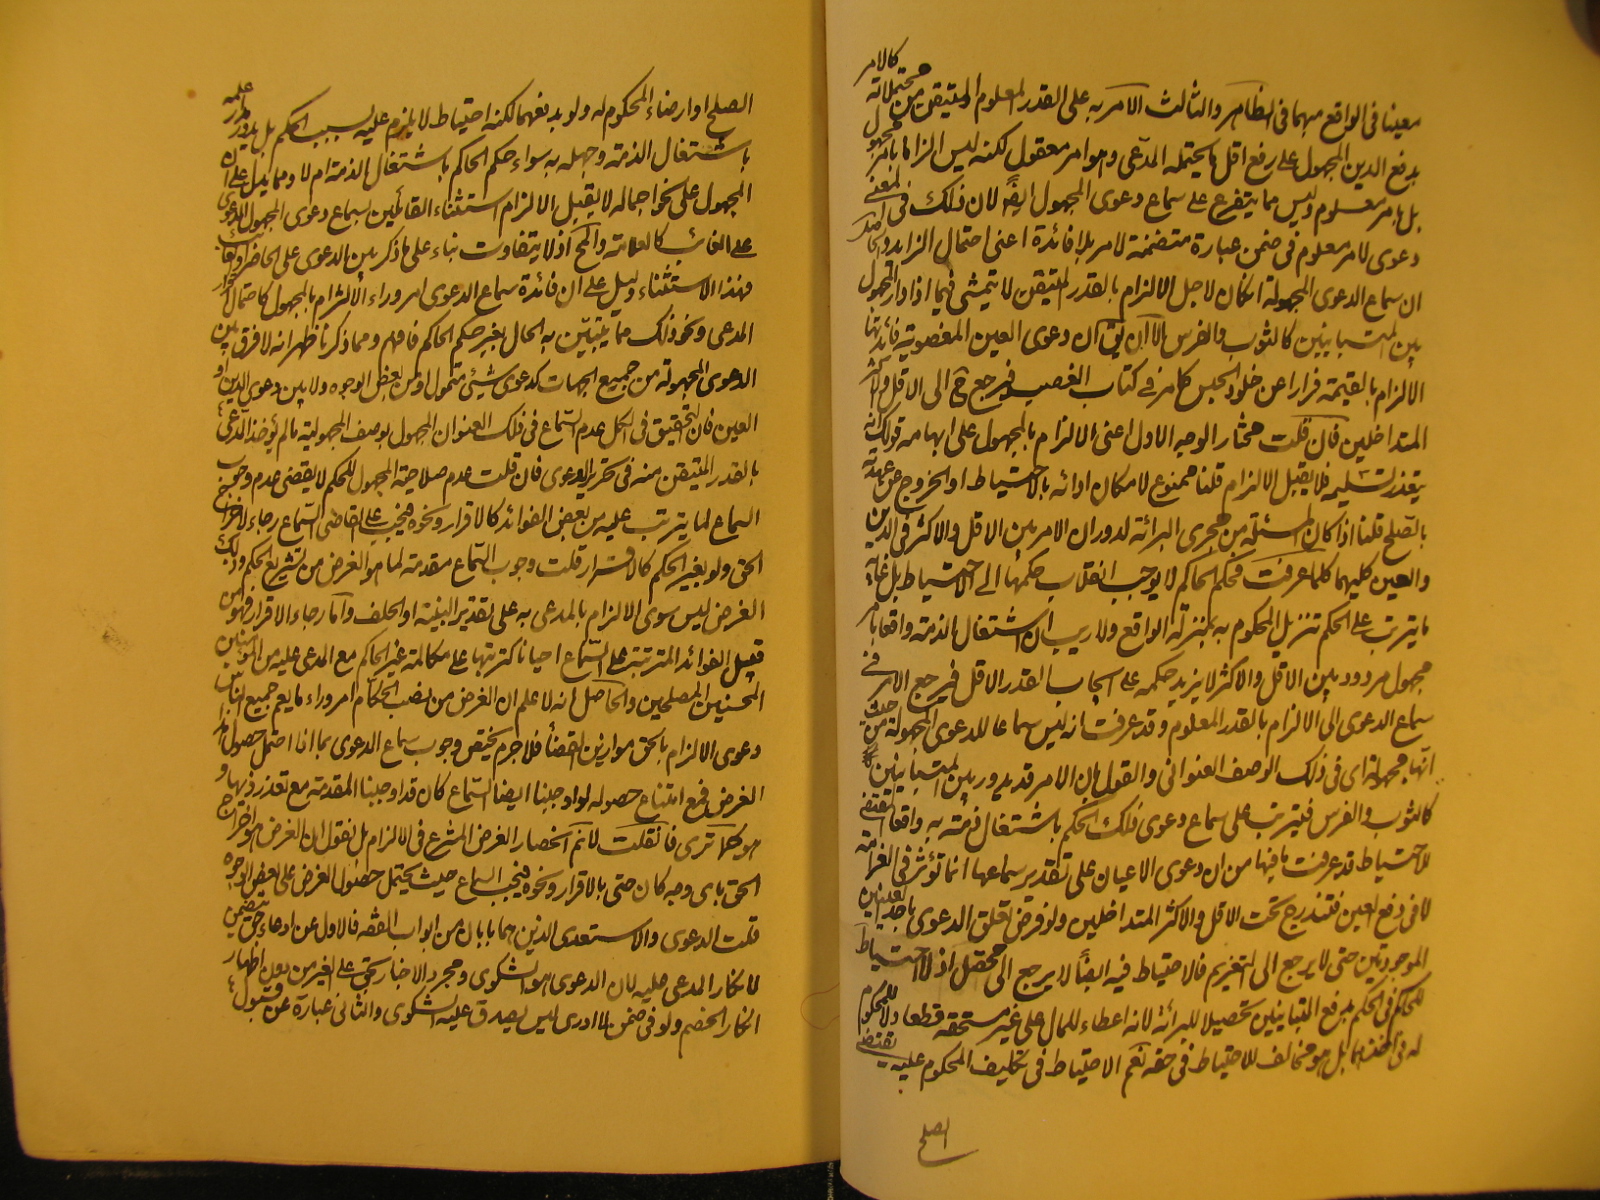 معينا في الواقع مبهما في الظاهر والثالث الامر به على القدر المعلوم المتيقن من محتملاته كالامر
بدفع الدين المجهول على رفع اقل ما يحتمله المدعى وهو امر معقول لكنه ليس الزاما بامر مجهول
بل بامر معلوم وليس مما يتفرع على سماع دعوى المجهول ايضا لان ذلك في المعنى
دعوى لامر معلوم في ضمن عبارة متضمنة لامر بلا فائدة اعنى احتمال الزايد
ان سماع الدعوى المجهولة ان كان لاجل الالزام بالقدر المتيقن لا يتمشى فيما اذا دار المجهول
بين المتباينين كالثوب والفرس الا ان يق ان دعوى العين المغصوبة فائدتها
الالزام بالقيمة فرارا عن خلود الحبس كما مر في كتاب الغصب فيرجع ح الى الاقل والاكثر
المتداخلين فان قلت مختار الوجه الاول اعنى الالزام بالمجهول على ابهامه قولك انه
يتعذر تسليمه فلا يقبل الالزام قلنا ممنوع لامكان ادائه بالاحتياط او الخروج عن عهدته
بالصلح قلنا اذا كان المسئلة من مجرى البرائة لدوران الامر بين الاقل والاكثر في الدين
والعين كليهما كلما عرفت فحكم الحاكم لا يوجب انقلاب حكمها الى الاحتياط بل غاية
ما يترتب على الحكم تنزيل المحكوم به بمنزلة الواقع ولا ريب ان اشتغال الذمة واقعا بامر
مجهول مردود بين الاقل والاكثر لا يزيد حكمه على ايجاب القدر الاقل فيرجع الامر في
سماع الدعوى الى الالزام بالقدر المعلوم وقد عرفت انه ليس سماعا للدعوى المجهولة من حيث
انها مجهولة اي في ذلك الوصف العنواني والقول بان الامر قد يدور بين المتباينين
كالثوب والفرس فيترتب على سماع دعوى ذلك الحكم باشتغال ذمته به واقعا المقتضى
للاحتياط قد عرفت ما فيها من ان دعوى الاعيان على تقدير سماعها انما تؤثر في الغرامة
لا في دفع العين فتندرج تحت الاقل والاكثر المتداخلين ولو فرض تعلق الدعوى باحد العينين
الموجودتين حتى لا يرجع الى التغريم فالاحتياط فيه ايضا لا يرجع الى محصل اذ لا احتياط
للحاكم في الحكم بدفع المتباينين تحصيلا للبرائة لانه اعطاء للمال على غير مستحقه قطعا ولا للمحكوم
له في اخذهما بل هو مخالف للاحتياط في حقه نعم الاحتياط في تكليف المحكوم عليه يقتضى
الصلح
الصلح او ارضاء المحكوم له ولو بدفعهما لكنه احتياط لا يلزم عليه بسبب الحكم بل يدور مدار علمه
باشتغال الذمة وجهله به سواء حكم الحاكم باشتغال الذمة ام لا ومما يدل على ان
المجهول على نحو اجماله لا يقبل الالزام استثناء القائلين بسماع دعوى المجهول الدعوى
على الغائب كالعلامة اذ لا يتفاوت بناء على ما ذكر بين الدعوى على الحاضر والغائب
فهذا الاستثناء دليل على ان فائدة سماع الدعوى امر وراء الالزام بالمجهول كاحتمال اقرار
المدعى ونحو ذلك مما يتبين به الحال بغير حكم الحاكم فافهم ومما ذكرنا ظهر انه لا فرق بين
الدعوى المجهولة من جميع الجهات كدعوى شيئ متمول او من بعض الوجوه ولا بين دعوى الدين او
العين فان التحقيق في الكل عدم السماع في ذلك العنوان المجهول بوصف المجهولية ما لم يؤخذ المدعى
بالقدر المتيقن منه في تحرير الدعوى فان قلت عدم صلاحية المجهول للحكم لا يقتضى عدم وجوب
السماع لما يترتب عليه من بعض الفوائد كالاقرار ونحوه فيجب على القاضى السماع رجاء لاخراج
الحق ولو بغير الحكم كالاقرار قلت وجوب السماع مقدمة لما هو الغرض من تشريع الحكم وذلك
الغرض ليس سوى الالزام بالمدعى به على تقدير البينة او الحلف واما رجاء الاقرار فهو من
قبيل الفوائد المترتبة على السماع احيانا كترتبها على مكالمة غير الحاكم مع المدعى عليه من المؤمنين
المحسنين المصلحين والحاصل انه لا علم ان الغرض من نصب الحكام امر وراء ما يعم جميع الناس
دعوى الالزام بالحق موازين القضاء فلا جرم يختص وجوب سماع الدعوى بما اذا احتمل حصول هذا
الغرض فمع امتناع حصوله لو اوجبنا ايضا السماع كان قد اوجبنا المقدمة مع تعذر ذيها و
هو كما ترى فان قلت لا نم انحصار الغرض المشرع في الالزام بل نقول ان الغرض هو اخراج
الحق باى وجه كان حتى بالاقرار ونحوه فيجب السماع حيث يحتمل حصول الغرض على بعض الوجوه
قلت الدعوى والاستعدى الذين هما بابان من ابواب الفقه فالاول عن ادعاء حق متضمن
لانكار المدعى عليه لان الدعوى هو الشكوى ومجرد الاخبار بحق على الغير من دون اظهار
انكار الخصم ولو في ضمن لا ادرى ليس يصدق عليه الشكوى والثانى عبارة عن قبول